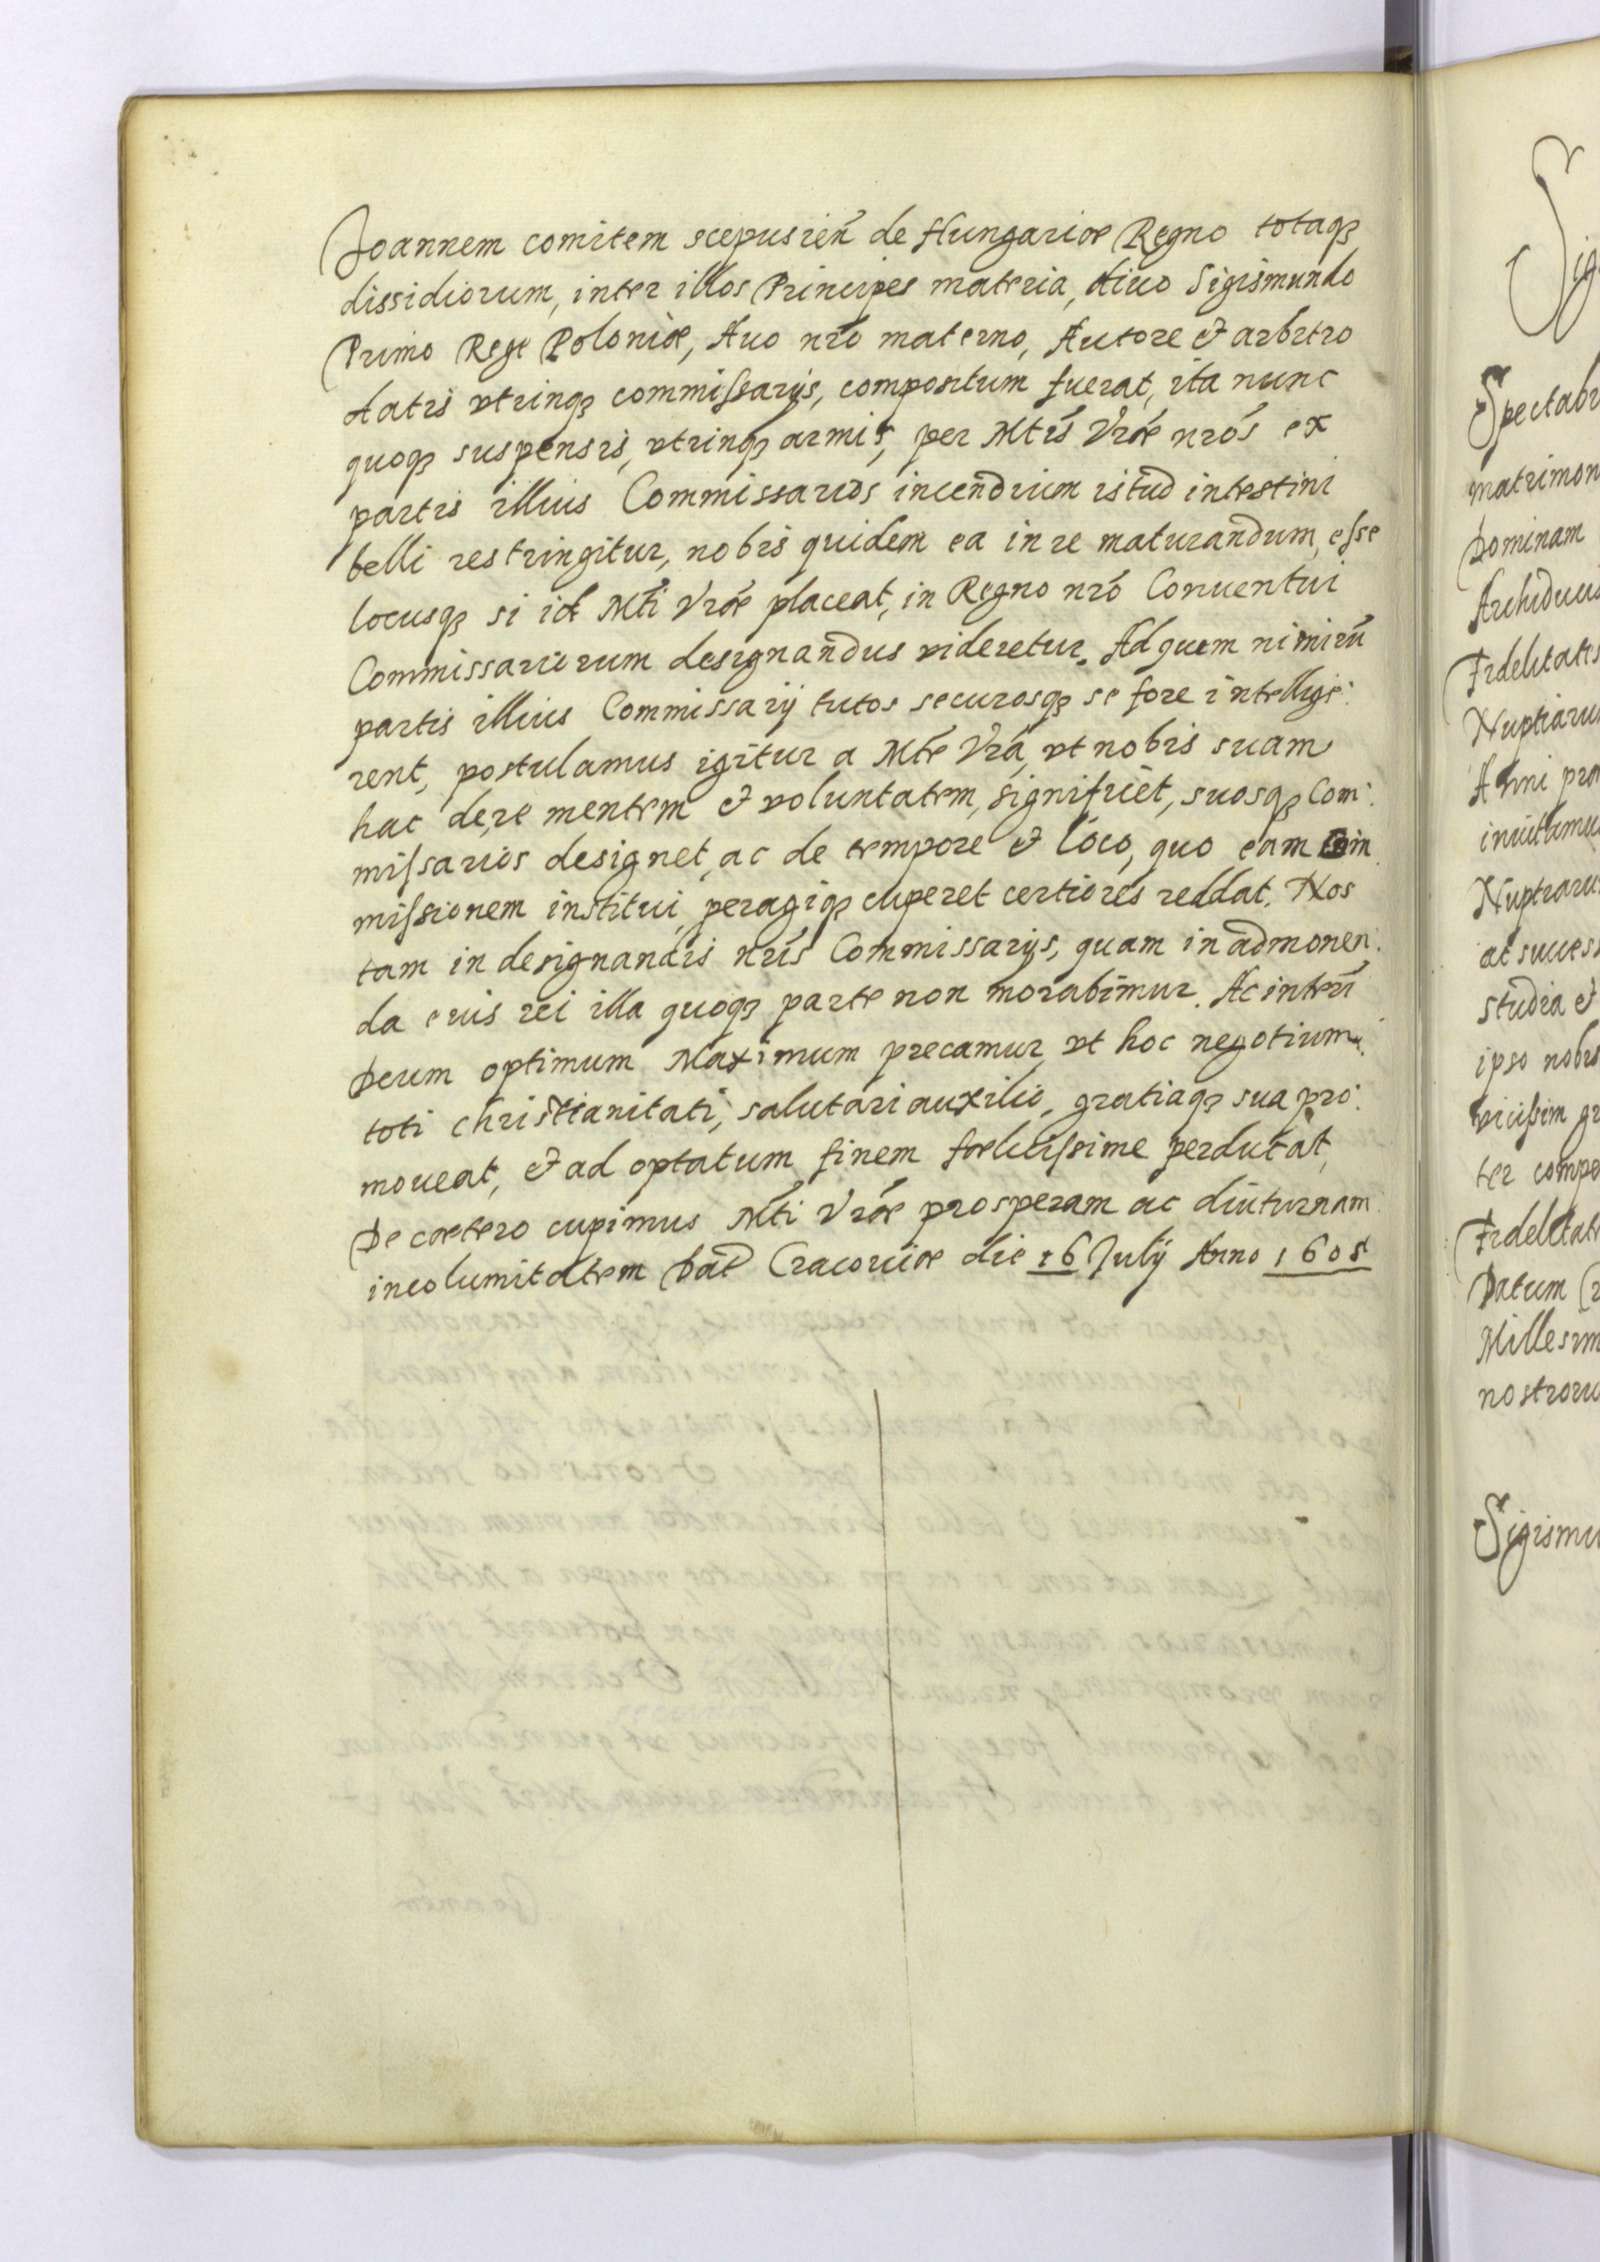 Joannem comitem scepusien̄ de Hungariæ Regno totaqȝ
dissidiorum, inter illos Principes materia, diuo Sigismundo
Primo Rege Poloniæ, Auo nr̄o materno, Autore & arbitro
datis vtrinqȝ commissarijs, compositum fuerat, ita nunc
quoqȝ suspensis, vtrinqȝ armis, per Mt̄is Vr̄æ nr̄os ex
partis illius Commissarios incendium istud intestini
belli restringitur, nobis quidem ea in re maturandum, esse
locusqȝ si id Mt̄i Vr̄æ placeat, in Regno nr̄o Conuentui
Commissariorum designandus videretur. Ad quem nimirū
partis illius Commissarij tutos securosqȝ se fore intellige:
rent, postulamus igitur a Mt̄e Vr̄a, vt nobis suam
hac de re mentem & voluntatem, significet, suosqȝ Com:
missarios designet, ac de tempore & loco, quo eam Com
missionem institui, peragiqȝ cuperet certiores reddat. Nos
tam in designandis nr̄is Commissarijs, quam in admonen:
da eius rei illa quoqȝ parte non morabimur. Ac interī
Deum optimum Maximum precamur, vt hoc negotium
toti christianitati, salutari auxilio, gratiaqȝ sua pro:
moueat, & ad optatum finem fœlicissime perducat,
De cætero cupimus Mt̄i Vr̄æ prosperam ac diuturnam
incolumitatem Dat̄ Cracouiæ die 16 July Anno 1605
Sig
Spectabi
matrimon
Dominam
Archiducis
Fidelitatis
Nuptiaru
Anni pro
inuitamu
Nuptiaru
at success
studia &
ipso nobis
vicissim gr
ter compe
Fidelitati
Datum
Millesim
nostroru
Sigismu